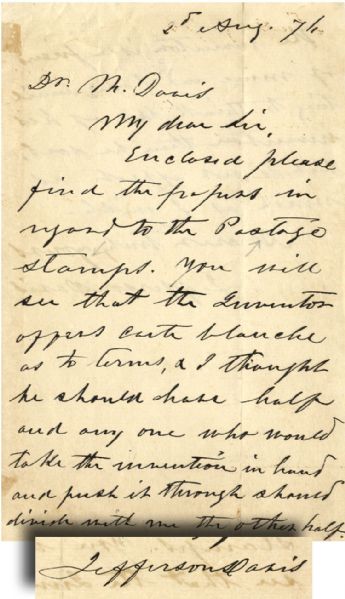 2d Aug. 76
Dr. M. Davis
My dear Sir,
Enclosed please
find the papers in
regard to the Postage
stamps. You will
see that the Inventor
offers carte blanche
as to terms, & I thought
he should have half
and any one who would
take the invention in hand
and push it through should
divide with me the other half.
Jefferson Davis